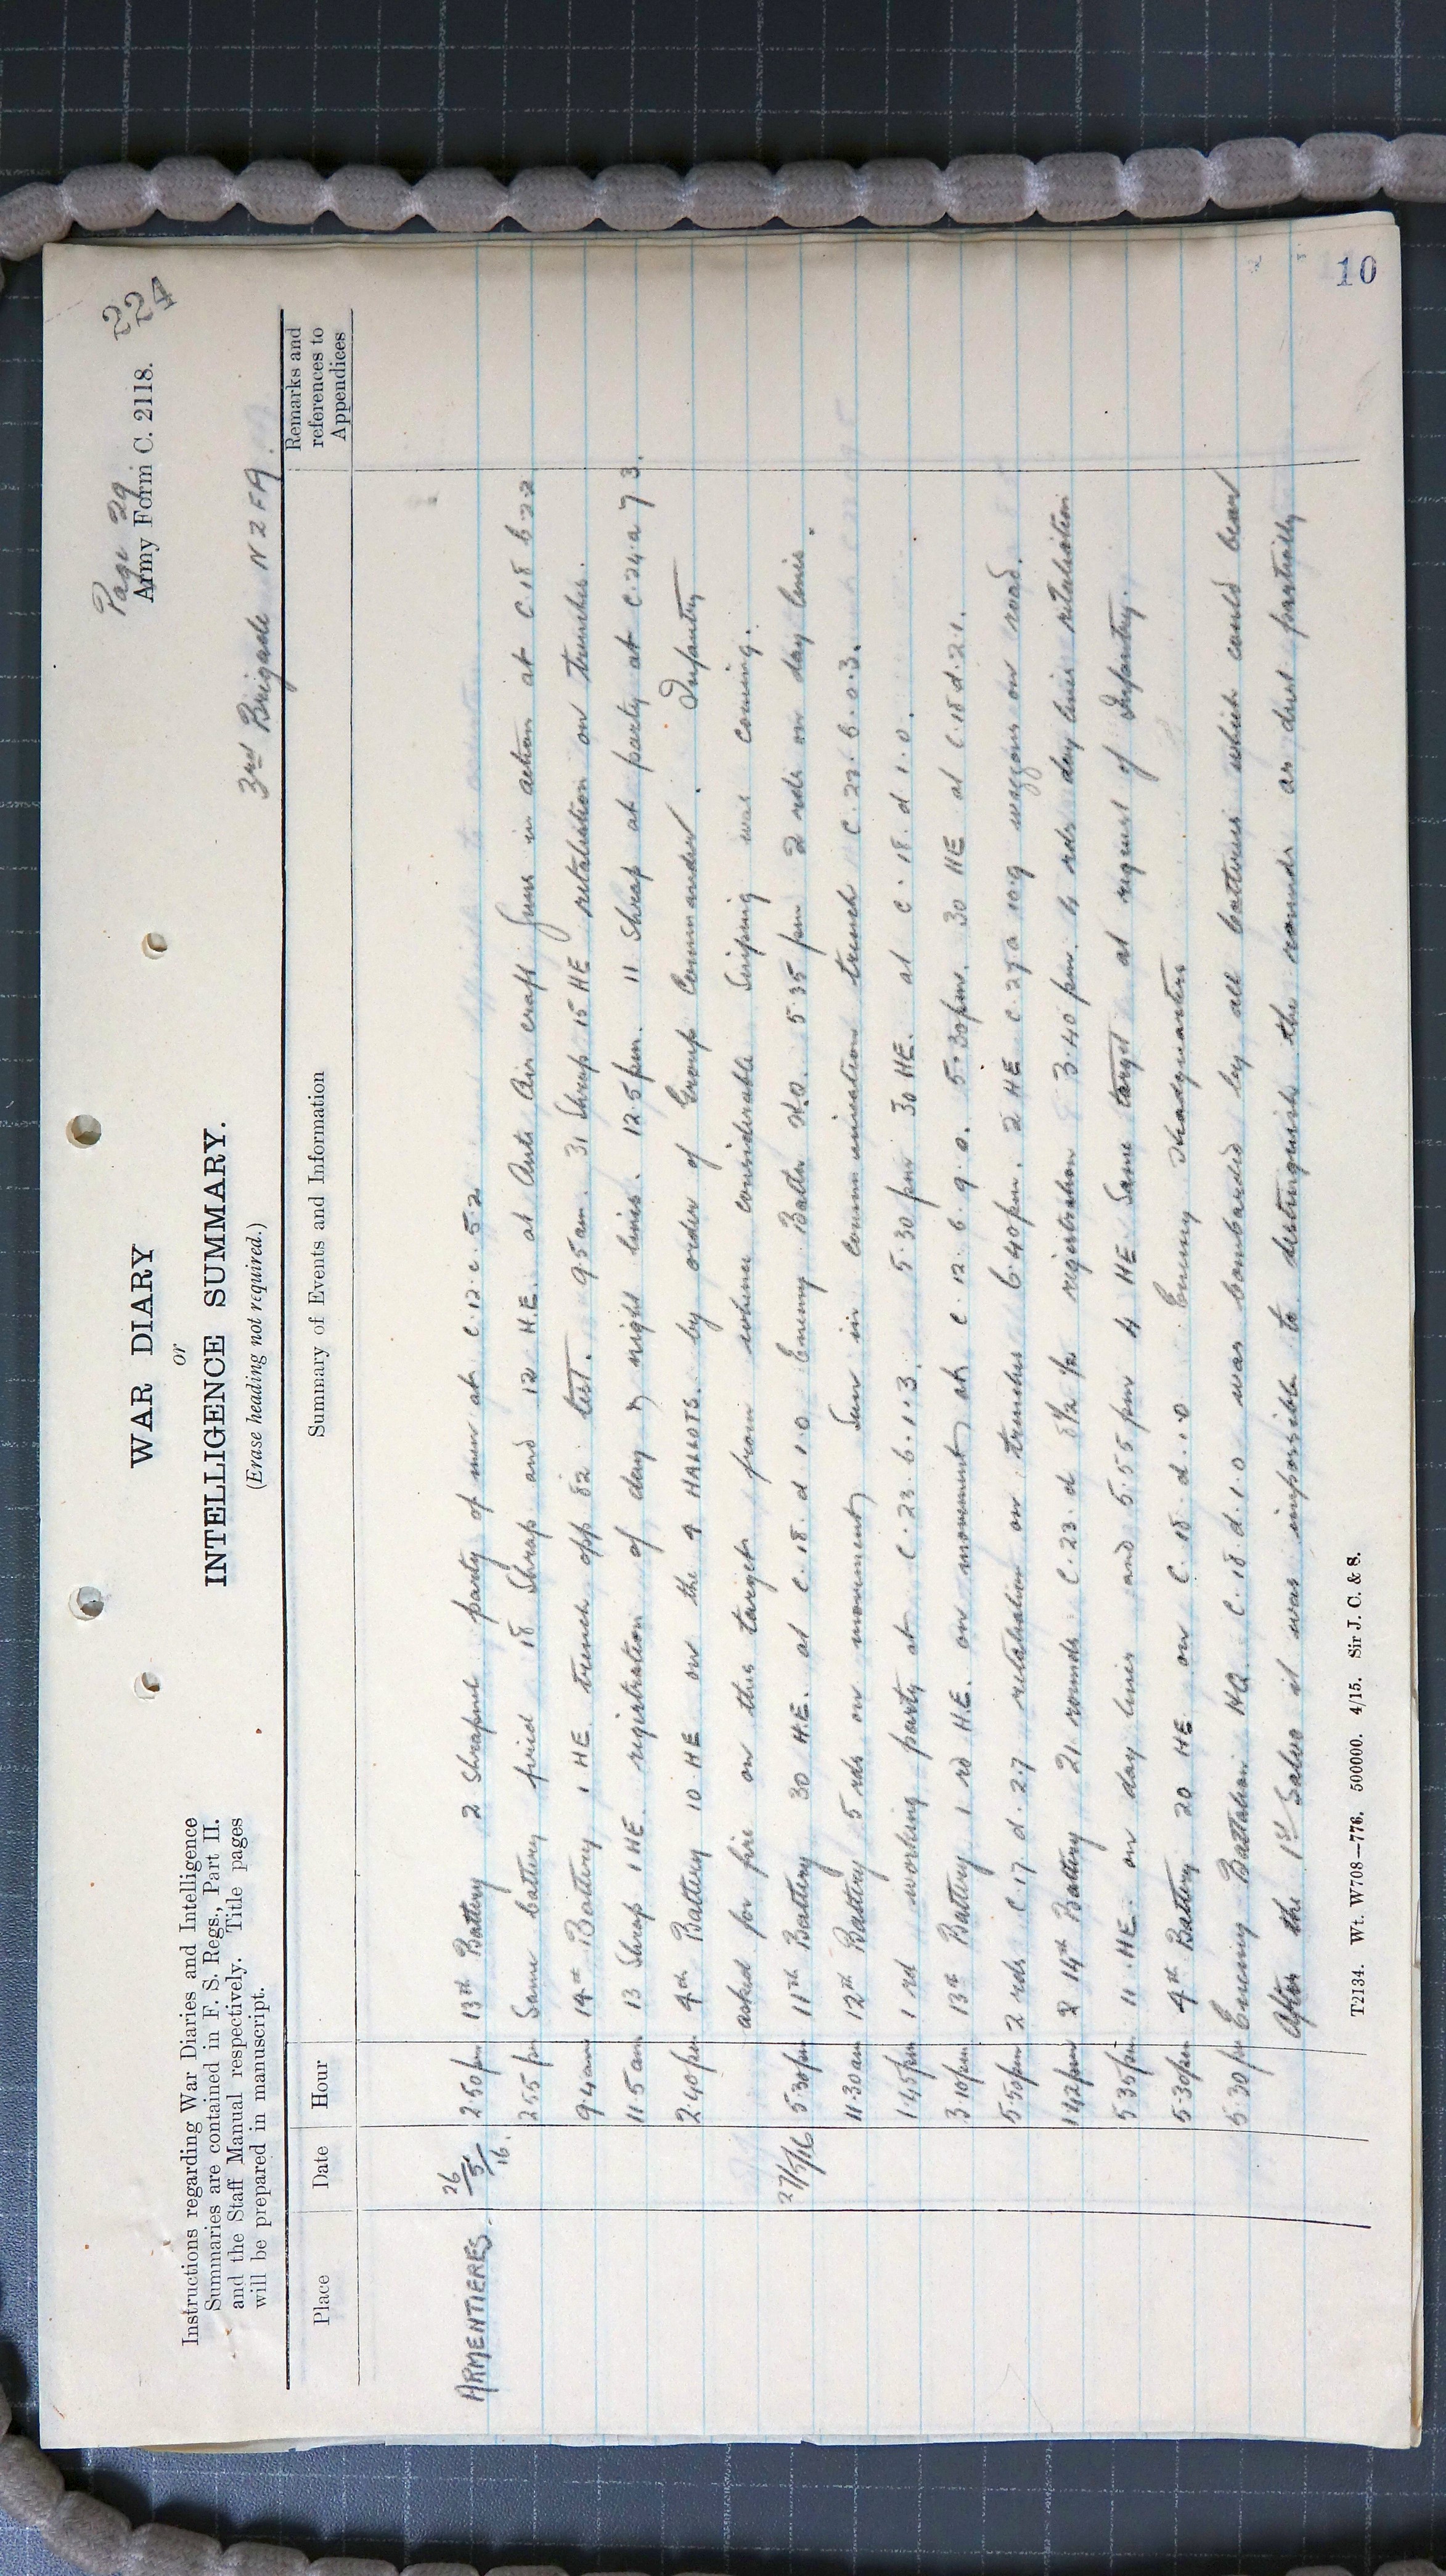 Page 29
224
Army Form C. 2118.
WAR DIARY
or
INTELLIGENCE SUMMARY.
(Erase heading not required.)
3rd Brigade NZFA.
Instructions regarding War Diaries and Intelligence
Summaries are contained in F. S. Regs., Part II.
and the Staff Manual respectively. Title pages
will be prepared in manuscript.
Place Date Hour Summary of Events and Information Remarks and references to Appendices
ARMENTIERES. 26/5/16. 2.50pm 13th Battery 2 Shrapnel party of men at C.12.c.5.2
2.55pm Same battery fired 18 Shrap and 12 H.E. at Anti Air craft Guns in action at C.18 b.2.2
9.4am 14th Battery 1 HE trench opp 82. test. 9.5am. 31 Shrap 15 HE retaliation on trenches.
11.5am 13 Shrap 1 HE. registration of day & night lines. 12.5pm. 11 Shrap at party at C.24.a 7 3.
2.40pm 4th Battery 10 HE on the 4 HALLOTS. by order of Group Commander. Infantry
asked for fire on this target from whence considerable Sniping was coming.
27/5/16 5.30pm 11th Battery 30 H.E. at C.18.d 1.0 Enemy Battn H.Q. 5.35pm 2 rds on day lines.
11.30am 12th Battery 5 rds on movement seen in communication trench C.22.b.0.3.
1.45pm 1 rd working party at C.23.b.1.3. 5.30pm 30 HE. at C.18.d.1.0.
3.10pm 13th Battery 1 rd H.E. on movement at C.12.b.9.0. 5.30pm. 30 HE at C.18.d.2.1.
5.50pm 2 rds C.17.d.2.7 retaliation on trenches 6.40pm. 2 HE C.27a 10.9 waggons on road.
1.42pm 2 14th Battery 21 rounds C.23.d 8½ ½ registration 3.40pm. 4 rds day lines retaliation
5.35pm 11 HE on day lines and 5.55pm 4 HE Same target at request of Infantry.
5.30pm 4th Battery 20 HE on C.18.d.1.0 Enemy Headquarters
5.30pm Enemy Battalion HQ C.18.d.1.0 was bombarded by all batteries which could bear
After the 1st Salvo it was impossible to distinguish the rounds as dust partially
T2134. Wt. W708—776. 500000. 4/15. Sir J. C. & S.
10